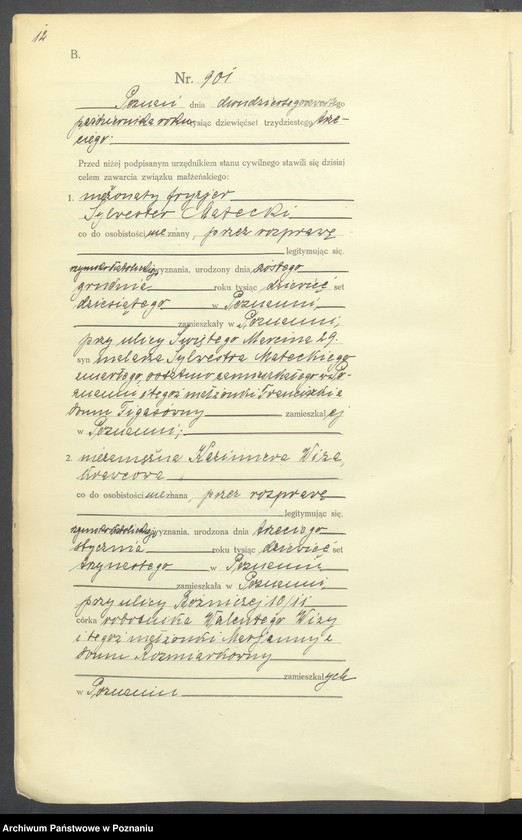 12
B.
Nr. 901
Poznań dnia dwudziestego
października roku tysiąc dziewięćset trzydziestego trze-
ciego.
Przed niżej podpisanym urzędnikiem stanu cywilnego stawili się dzisiaj
celem zawarcia związku małżeńskiego:
1. fryzjer
Sylwester Matecki
co do osobistości nie znany, przez rozprawę
legitymując się.
rzymskokatolickiego wyznania, urodzony dnia szóstego
grudnia roku tysiąc dziewięć set
dziesiątego w Poznaniu,
zamieszkały w Poznaniu,
przy ulicy Świętego Marcina 29.
syn malarza Sylwestra Mateckiego
zmarłego, ostatnio zamieszkałego w Po-
znaniu i tegoż małżonki Franciszki z
domu zamieszkałej
w Poznaniu;
2. niezamężna Kazimiera Wiza,
krawcowa
co do osobistości nie znana, przez rozprawę
legitymując się.
rzymskokatolickiego wyznania, urodzona dnia trzeciego
stycznia roku tysiąc dziewięć set
trzynastego w Poznaniu
zamieszkała w Poznaniu,
przy ulicy 10/11
córka robotnika Walentego Wizy
i tegoż małżonki Marjanny z
domu
zamieszkałych
w Poznaniu
Archiwum Państwowe w Poznaniu